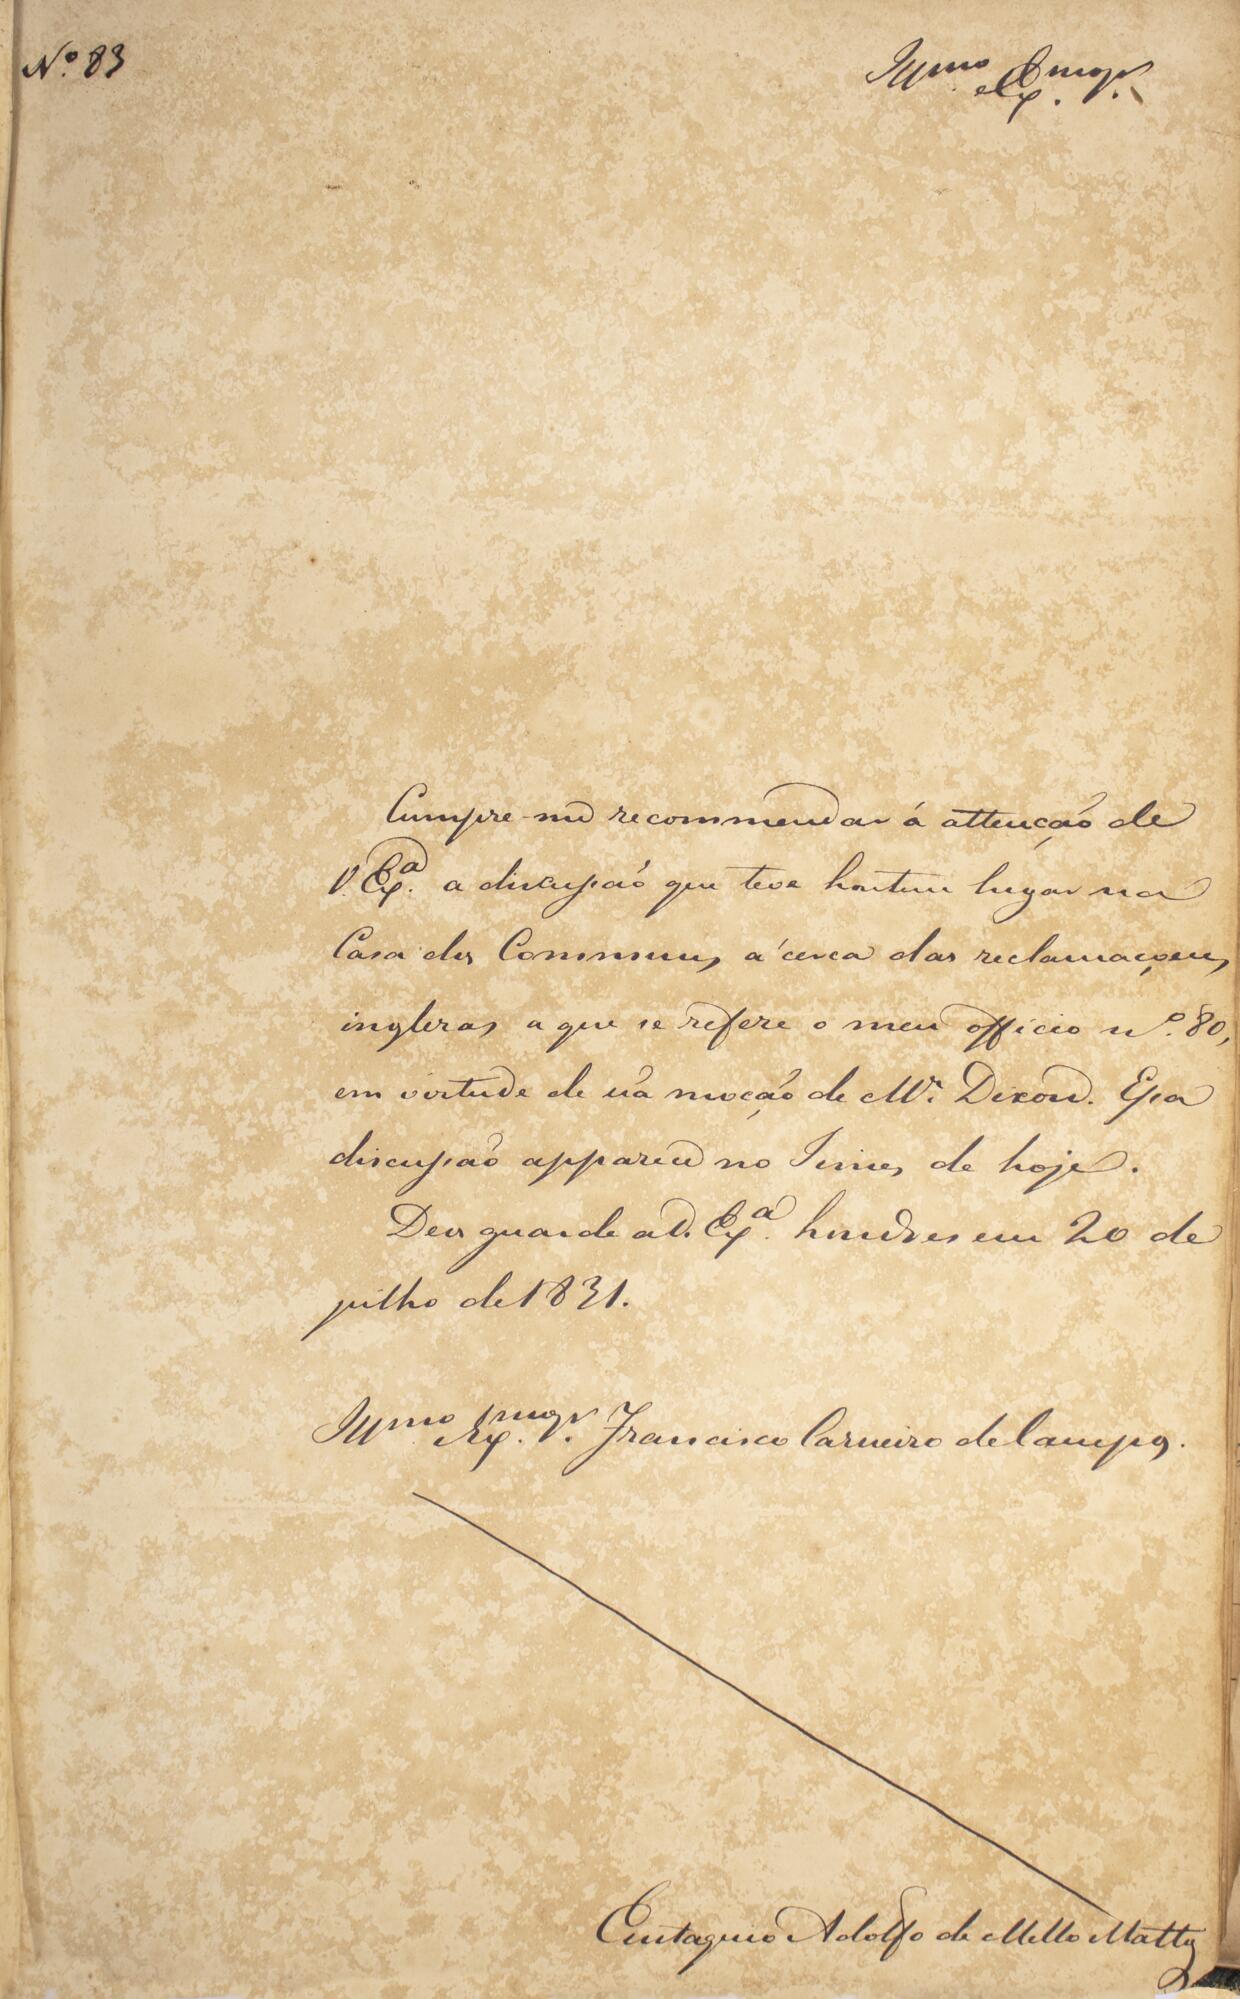 Nº 83
Illmo e Exmo Sr.
Cumpre-me recommendar á attenção de
V. Exª. a discussaõ que teve hontem lugar na
Casa dos Communs, a'cerca das reclamaçoens
inglezas a que se refere o meu officio nº. 80,
em virtude de uã moçaõ de Mr. Dixon. Essa
discussaõ appareceu no Times de hoje.
Deos guarde a V. Exª. Londres em 20 de
julho de 1831.
Illmo e Exmo Sr. Francisco Carneiro de Campos.
Eustaquio Adolfo de Mello Mattos